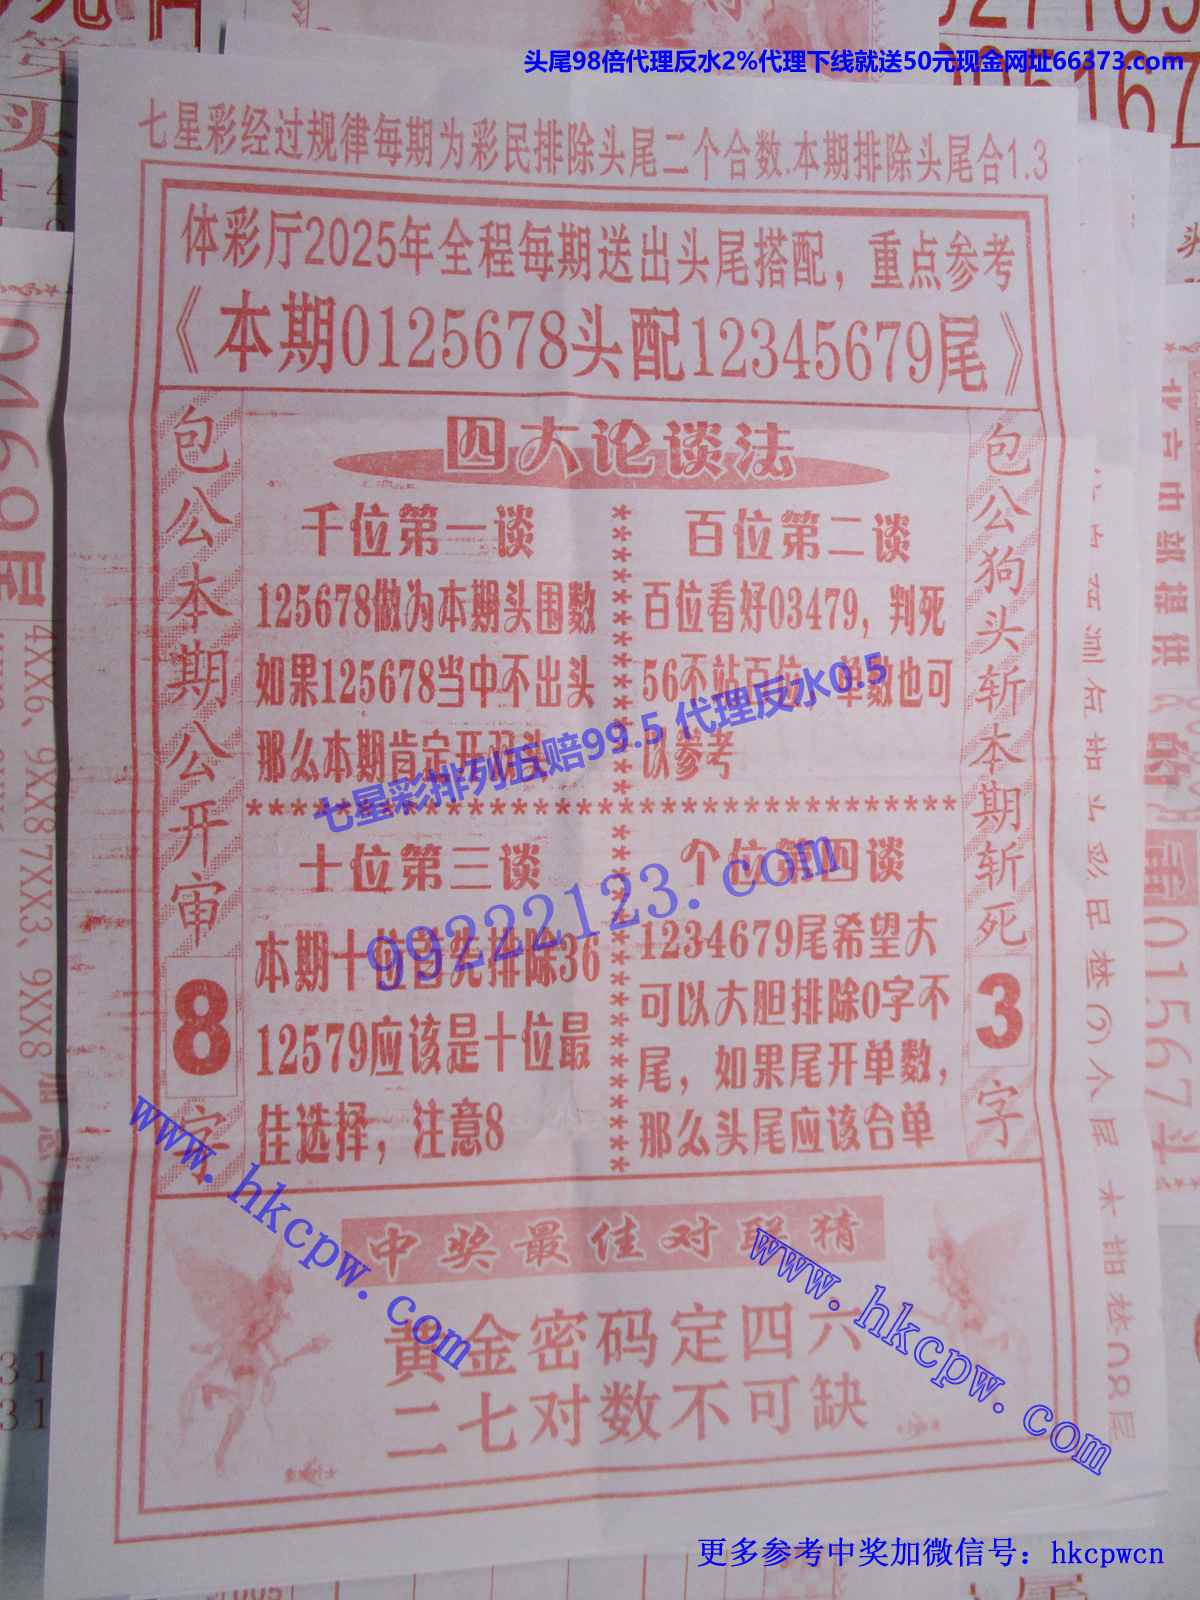 头尾98倍代理反水2%代理下线就送50元现金网址66373.com
七星彩经过规律每期为彩民排除头尾二个合数.本期排除头尾合1.3
体彩厅2025年全程每期送出头尾搭配，重点参考
《本期0125678头配12345679尾》
包公本期公开审8字
四大论谈法
千位第一谈
125678做为本期头围数
如果125678当中不出头
那么本期肯定开双头
百位第二谈
百位看好03479，判死
56不站百位，单数也可
以参考
七星彩排列五赔99.5 代理反水0.5
十位第三谈
本期十位首先排除36
12579应该是十位最
佳选择，注意8
99222123.com
个位第四谈
1234679尾希望大
可以大胆排除0字不
尾，如果尾开单数，
那么头尾应该合单
包公狗头斩本期斩死3字
中奖最佳对联猜
黄金密码定四六
二七对数不可缺
www.hkcpw.com
www.hkcpw.com
更多参考中奖加微信号：hkcpwcn